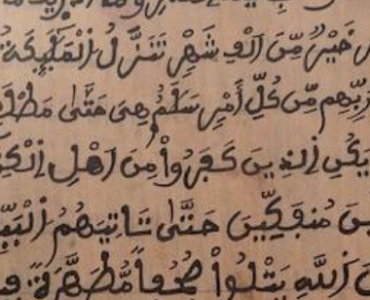 خَيْرٌ مِّنَ اَلْفِ شَهْرٍ تَنَزَّلُ اُلْمَلَٰٓئِكَةُ
رَبِّهِم مِّن كُلِّ أَمْرٍ سَلَٰمٌ هِيَ حَتَّىٰ مَطْلَ
يَكُنِ اِلذِينَ كَفَرُواْ مِنَ اَهْلِ اِلْكِ
ينَ مُنفَكِّينَ حَتَّىٰ تَاتِيَهُمُ اُلْبَيِّ
نَ اَللَّهِ يَتْلُواْ صُحُفاً مُّطَهَّرَةً في